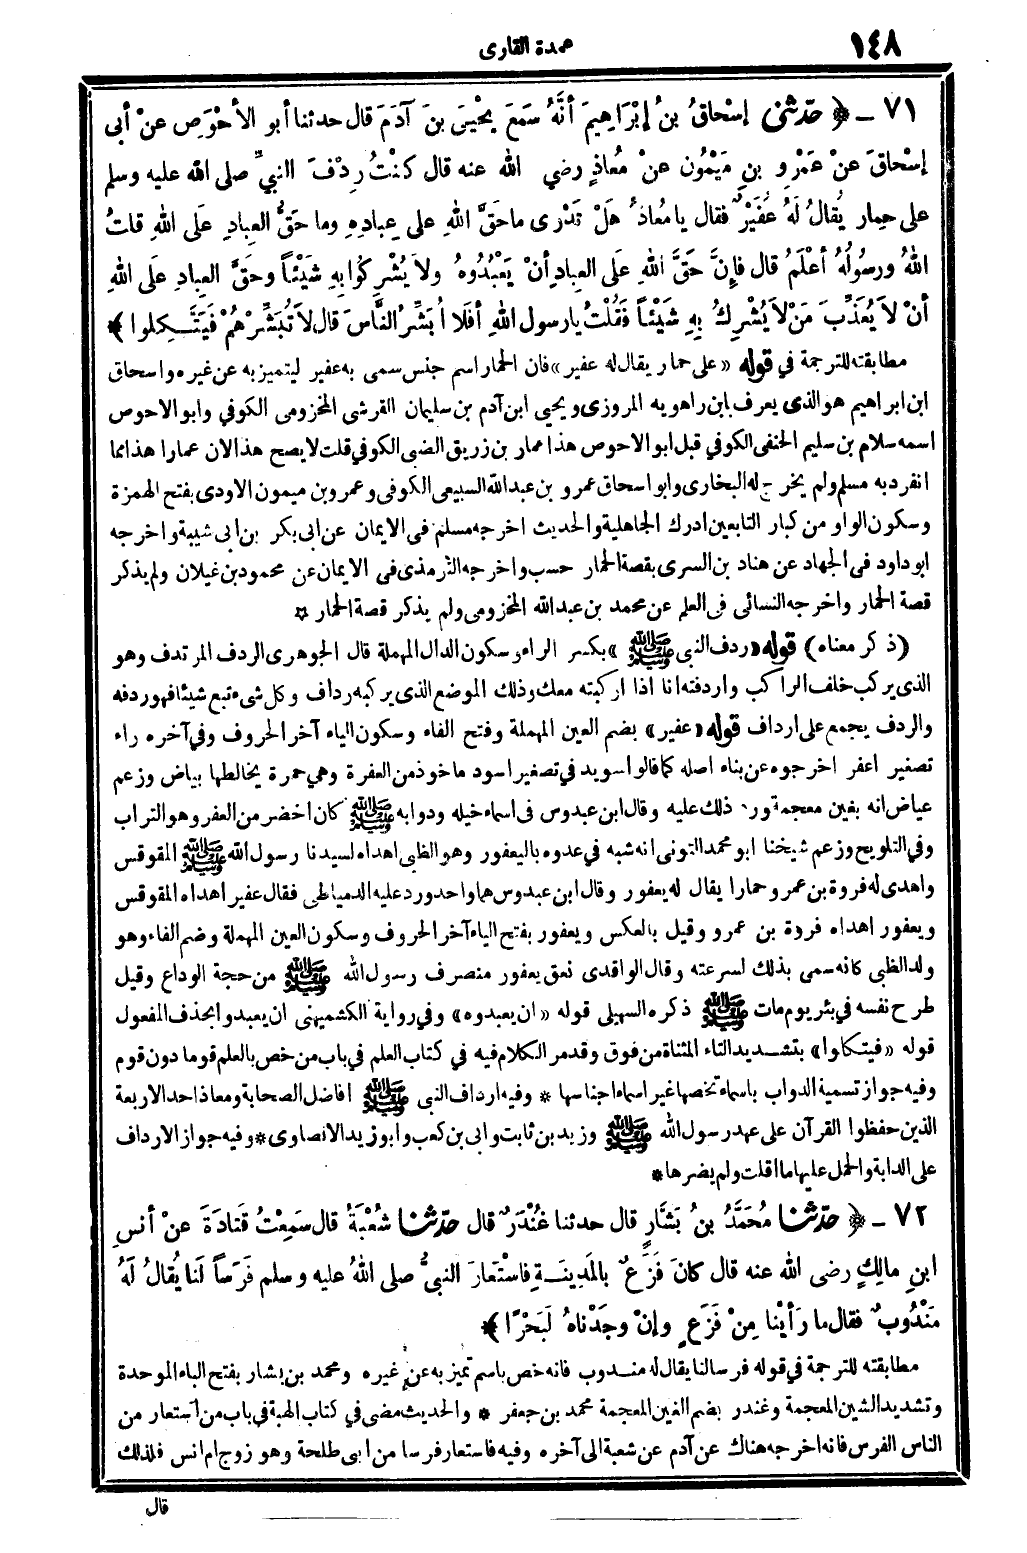 ١٤٨
عمدة القارى
٧١ ـ ﴿ حدّثنى إسْحاقُ بنُ إبْرَاهِيمَ أنَّهُ سَمَعَ يحْيَى بنَ آدَمَ قال حدثنا أبو الأحْوَصِ عنْ أبى
إسْحاقَ عنْ عَمْرِو بنِ مَيْمُونٍ عنْ مُعاذٍ رضي الله عنه قال كنْتُ رِدْفَ النبيِّ صلى الله عليه وسلم
على حِمار يُقالُ لَهُ عُفَيْرٌ فقال يا مُعاذُ هَلْ تَدْرى ما حَقُّ اللهِ على عِبادِهِ وما حَقُّ العِبادِ عَلَى اللهِ قلتُ
اللهُ ورسُولُهُ أعْلَمُ قال فإنَّ حَقَّ اللهِ علَى العبادِ أنْ يَعْبُدُوهُ ولاَ يُشْرِكُوا بِهِ شَيْئاً وحَقَّ العبادِ علَى اللهِ
أنْ لاَ يُعَذِّبَ مَنْ لاَ يُشْرِكُ بِهِ شَيْئاً فَقُلْتُ يا رسول اللهِ أفَلا أُبَشِّرُ النَّاسَ قال لاَ تُبَشِّرْهُمْ فَيَتَّكِلوا ﴾
مطابقته للترجمة في قوله «على حمار يقال له عفير» فان الحمار اسم جنس سمى به عفير ليتميز به عن غيره واسحاق
ابن ابراهيم هو الذى يعرف بابن راهويه المروزى ويحيى ابن آدم بن سليمان القرشى المخزومى الكوفي وابو الاحوص
اسمه سلام بن سليم الحنفى الكوفي قيل ابو الاحوص هذا عمار بن زريق الضبى الكوفي قلت لا يصح هذا لان عمارا هذا مما
انفرد به مسلم ولم يخرج له البخارى وابو اسحاق عمرو بن عبد الله السبيعى الكوفى وعمرو بن ميمون الاودى بفتح الهمزة
وسكون الواو من كبار التابعين ادرك الجاهلية والحديث اخرجه مسلم فى الايمان عن ابى بكر بن ابى شيبة واخرجه
ابو داود فى الجهاد عن هناد بن السرى بقصة الحمار حسب واخرجه الترمذى فى الايمان عن محمود بن غيلان ولم يذكر
قصة الحمار واخرجه النسائى فى العلم عن محمد بن عبد الله المخزومى ولم يذكر قصة الحمار *
(ذكر معناه) قوله «ردف النبى ﷺ» بكسر الراء وسكون الدال المهملة قال الجوهرى الردف المرتدف وهو
الذى يركب خلف الراكب واردفته انا اذا اركبته معك وذلك الموضع الذى يركبه رداف وكل شىء تبع شيئا فهو ردفه
والردف يجمع على ارداف قوله «عفير» بضم العين المهملة وفتح الفاء وسكون الياء آخر الحروف وفي آخره راء
تصغير اعفر اخرجوه عن بناء اصله كما قالوا سويد في تصغير اسود ماخوذ من العفرة وهي حمرة يخالطها بياض وزعم
عياض انه بغين معجمة ورد ذلك عليه وقال ابن عبدوس فى اسماء خيله ودوابه ﷺ كان اخضر من العفر وهو التراب
وفى التلويح وزعم شيخنا ابو محمد التونى انه شبه في عدوه باليعفور وهو الظبى اهداه لسيدنا رسول الله ﷺ المقوقس
واهدى له فروة بن عمرو حمارا يقال له يعفور وقال ابن عبدوس هما واحد ورد عليه الدمياطى فقال عفير اهداه المقوقس
ويعفور اهداه فروة بن عمرو وقيل بالعكس ويعفور بفتح الياء آخر الحروف وسكون العين المهملة وضم الفاء وهو
ولد الظبى كانه سمى بذلك لسرعته وقال الواقدى نعق يعفور منصرف رسول الله ﷺ من حجة الوداع وقيل
طرح نفسه في بئر يوم مات ﷺ ذكره السهيلى قوله «ان يعبدوه» وفي رواية الكشميهنى ان يعبدوا بحذف المفعول
قوله «فيتكلوا» بتشديد التاء المثناة من فوق وقد مر الكلام فيه في كتاب العلم في باب من خص بالعلم قوما دون قوم
وفيه جواز تسمية الدواب باسماء تخصها غير اسماء اجناسها * وفيه ارداف النبى ﷺ افاضل الصحابة ومعاذ احد الاربعة
الذين حفظوا القرآن على عهد رسول الله ﷺ وزيد بن ثابت وابى بن كعب وابو زيد الانصاوى * وفيه جواز الارداف
على الدابة والحمل عليها ما اقلت ولم يضرها *
٧٢ ـ ﴿ حدّثنا مُحَمَّدُ بنُ بَشَّارٍ قال حدثنا غُنْدَرٌ قال حدّثنا شُعْبَةُ قال سَمِعْتُ قَتادَةَ عنْ أنَسِ
ابنِ مالِكٍ رضى الله عنه قال كانَ فَزَعٌ بالمَدِينَةِ فاسْتَعارَ النبيُّ صلى اللهُ عليه وسلم فَرَساً لَنا يُقالُ لَهُ
مَنْدُوبٌ فقال ما رَأيْنا مِنْ فَزَعٍ وإنْ وجَدْناهُ لَبَحْرًا ﴾
مطابقته للترجمة في قوله فرسا لنا يقال له مندوب فانه خص باسم تميز به عن غيره ومحمد بن بشار بفتح الباء الموحدة
وتشديد الشين المعجمة وغندر بضم الغين المعجمة محمد بن جعفر * والحديث مضى في كتاب الهبة في باب من استعار من
الناس الفرس فانه اخرجه هناك عن آدم عن شعبة الى آخره وفيه فاستعار فرسا من ابى طلحة وهو زوج ام انس فلذلك
قال